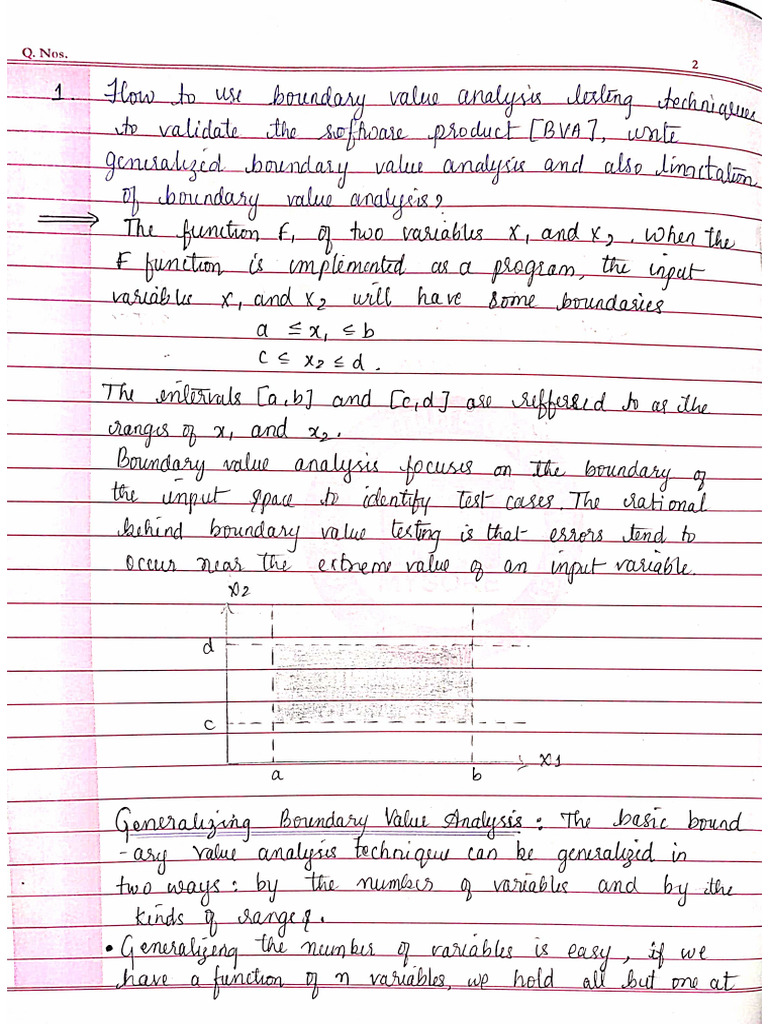 Q. Nos.
2
1 How to use boundary value analysis testing techniques
to validate the software product [BVA], write
generalized boundary value analysis and also limitation
of boundary value analysis?
⟹ The function F, of two variables x₁ and x₂. When the
F function is implemented as a program, the input
variables x₁ and x₂ will have some boundaries
a ≤ x₁ ≤ b
c ≤ x₂ ≤ d.
The intervals [a,b] and [c,d] are reffered to as the
ranges of x₁ and x₂.
Boundary value analysis focuses on the boundary of
the input space to identify test cases. The rational
behind boundary value testing is that errors tend to
occur near the extreme value of an input variable.
x2
d
c
x1
a b
Generalizing Boundary Value Analysis : The basic bound
-ary value analysis technique can be generalized in
two ways : by the number of variables and by the
kinds of ranges.
• Generalizing the number of variables is easy, if we
have a function of n variables, we hold all but one at